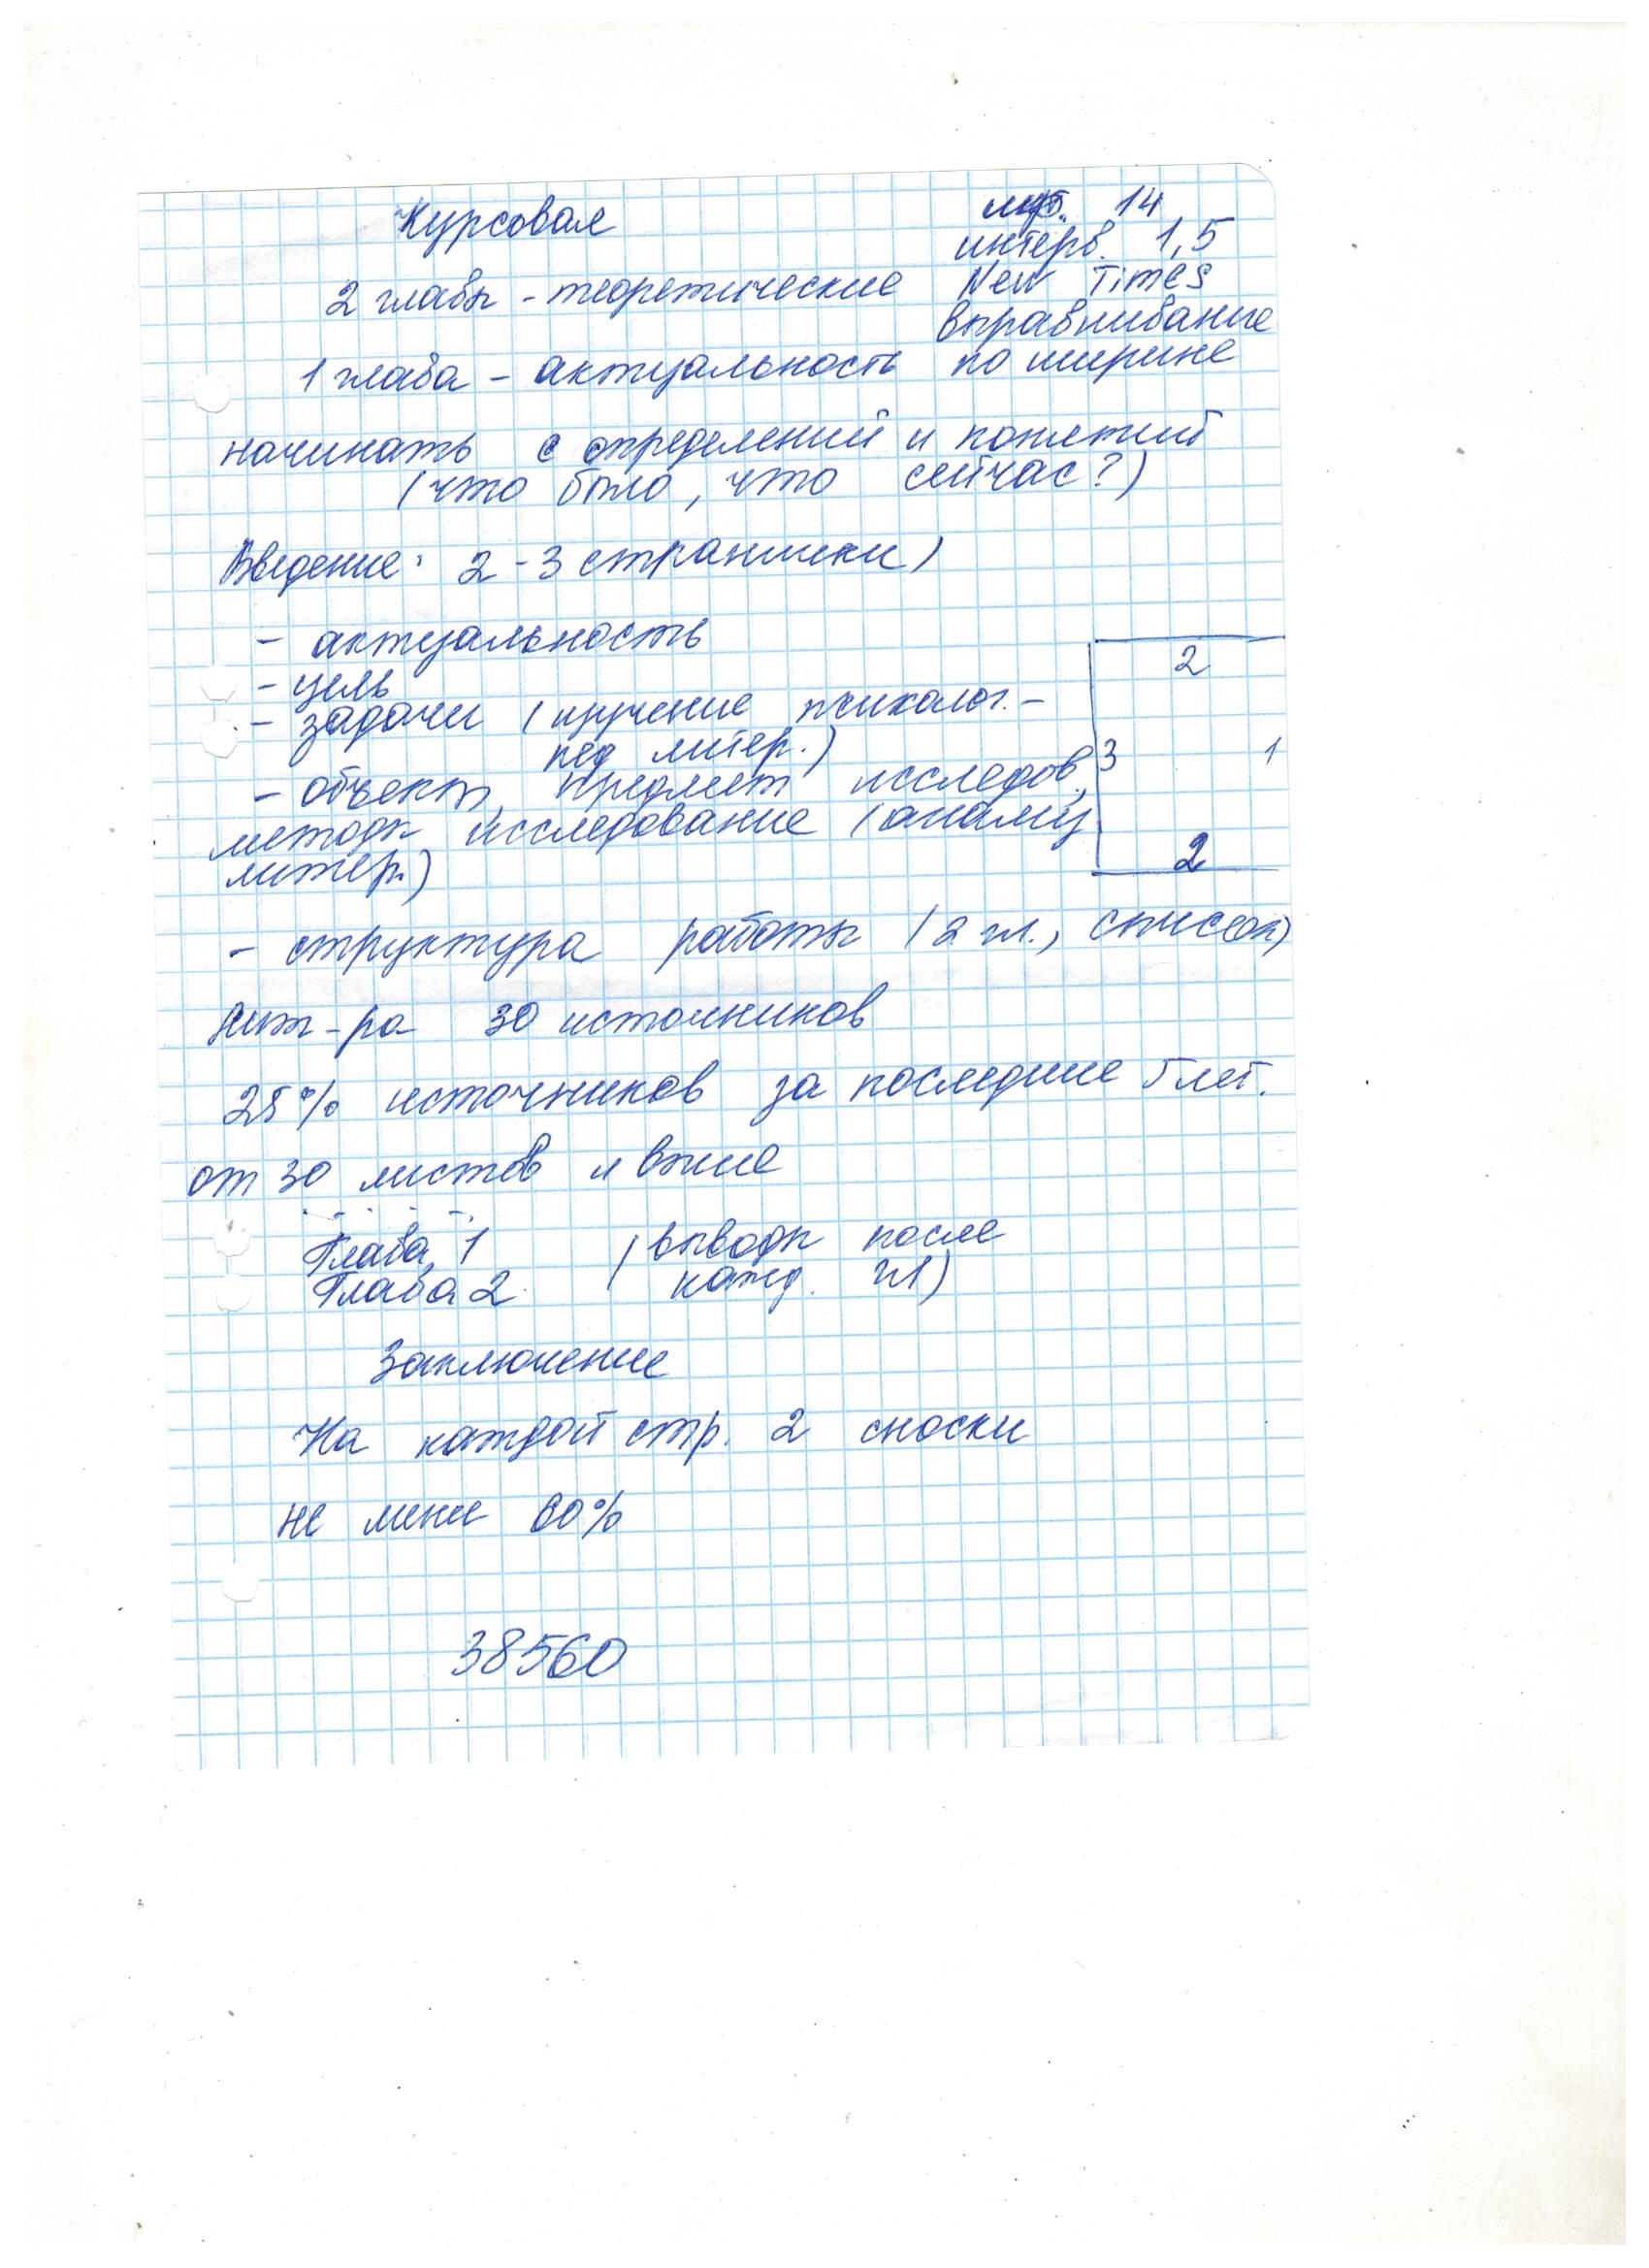 Курсовая
14
интерв. 1,5
2 главы - теоретические
New Times
выравнивание
1 глава - актуальность
по ширине
начинать с определений и понятий
(что было, что сейчас?)
Введение: 2-3 странички)
- актуальность
- цель
- задачи (изучение психолог.-
пед литер.)
- объект, предмет исследов,
методы исследование (анализ
литер.)
2
3 1
2
- структура работы (2 гл., список)
лит-ра 30 источников
25% источников за последние 5 лет.
от 30 листов и выше
Глава 1 (выводы после
Глава 2. кажд. гл)
Заключение
На каждой стр. 2 сноски
не мене 60%
38560